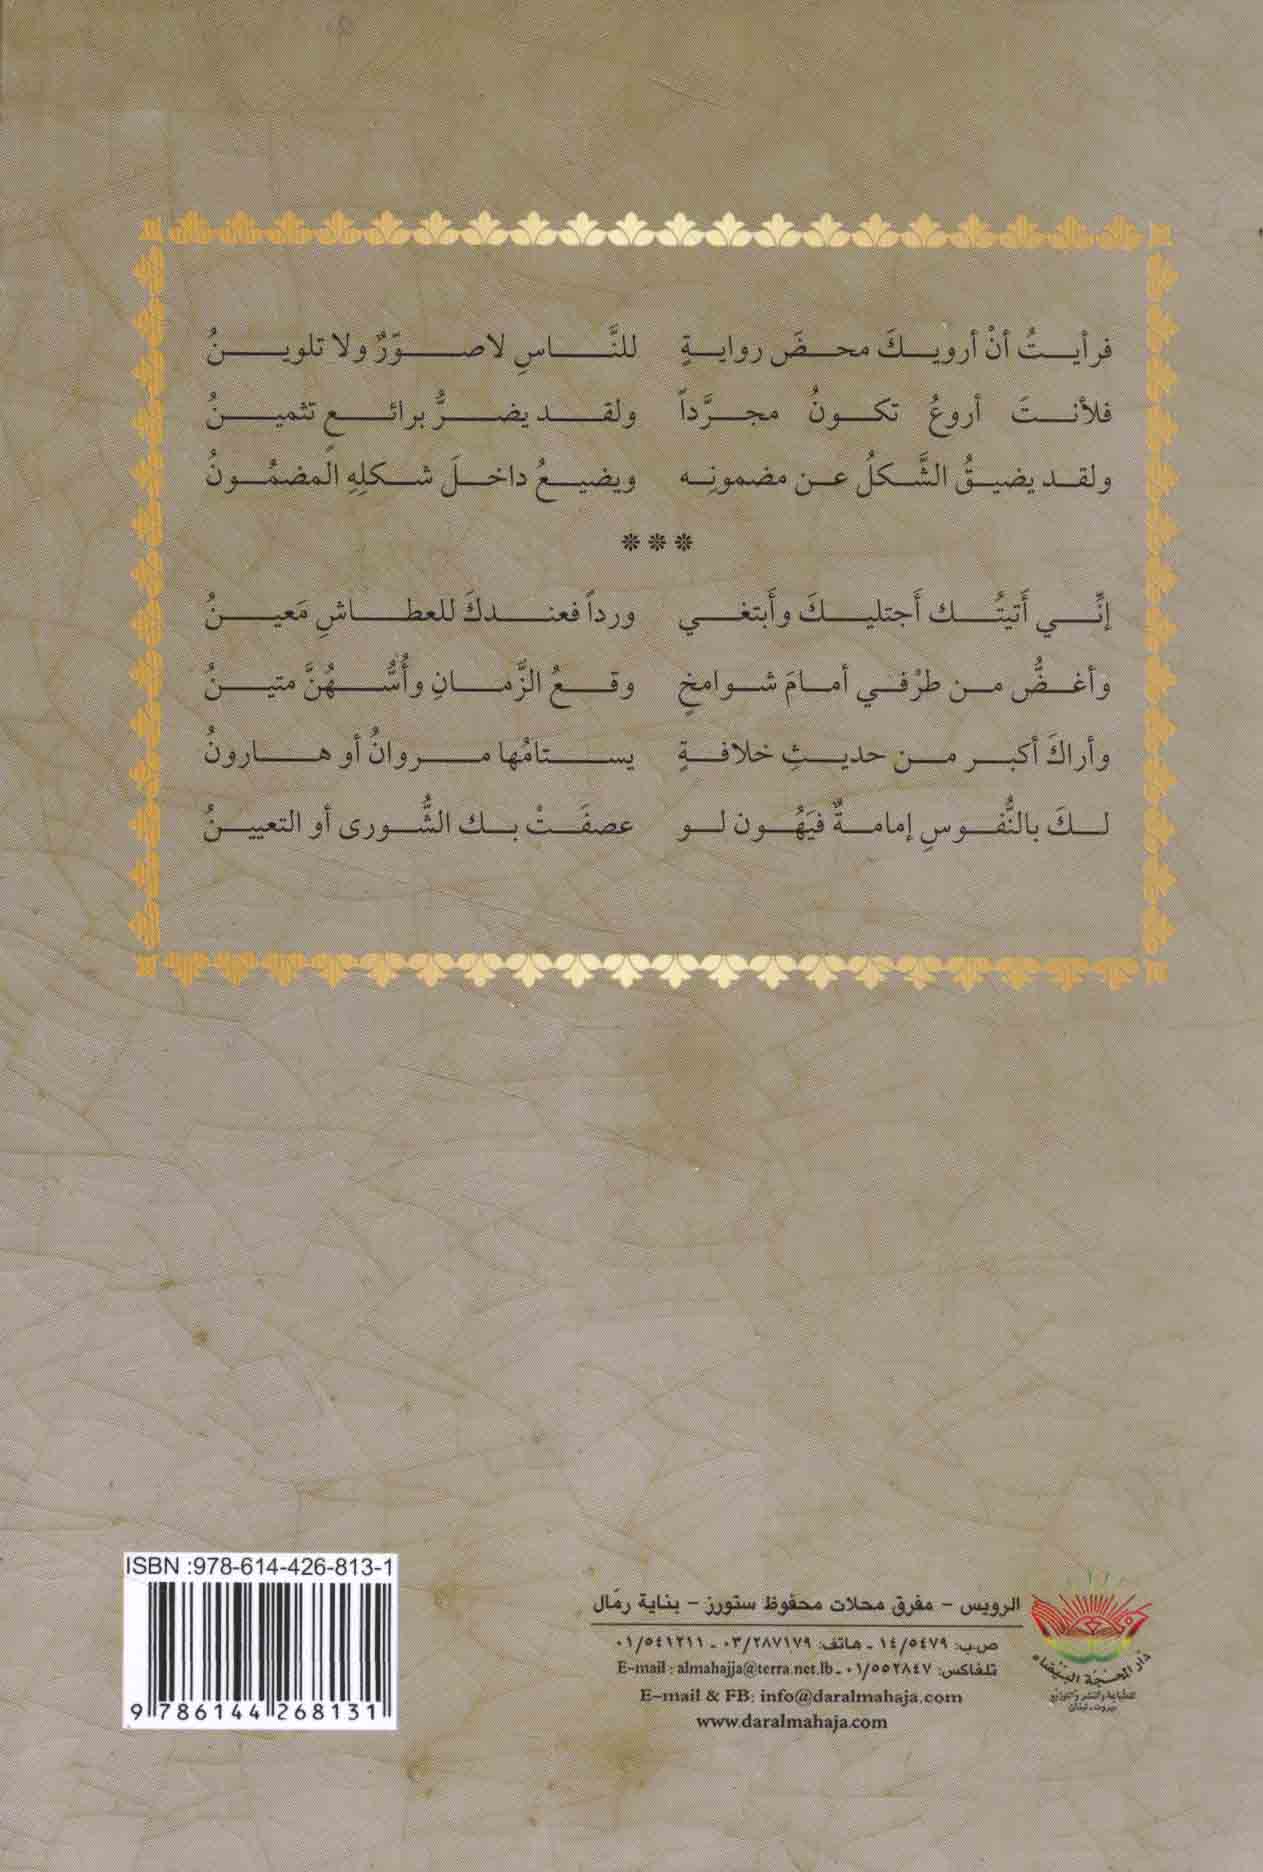 فرأيتُ أنْ أرويكَ محضَ روايةٍ للنَّاسِ لا صوَرٌ ولا تلوينُ
فلأنتَ أروعُ تكونُ مجرَّداً ولقد يضرُّ برائعٍ تثمينُ
ولقد يضيقُ الشَّكلُ عن مضمونِه ويضيعُ داخلَ شكلِهِ المضمُونُ
* * *
إنِّي أَتيتُك أَجتليكَ وأَبتغي ورداً فعندكَ للعطاشِ مَعينُ
وأغضُّ من طرْفي أمامَ شوامخٍ وقعُ الزَّمانِ وأُسُّهُنَّ متينُ
وأراكَ أكبر من حديثِ خلافةٍ يستامُها مروانُ أو هارونُ
لكَ بالنُّفوسِ إمامةٌ فيَهُون لو عصفَتْ بك الشُّورى أو التعيينُ
ISBN :978-614-426-813-1
9 786144 268131
الرويس - مفرق محلات محفوظ ستورز - بناية رمّال
ص.ب: ١٤/٥٤٧٩ - هاتف: ٠٣/٢٨٧١٧٩ - ٠١/٥٤١٢١١
تلفاكس: ٠١/٥٥٢٨٤٧ - E-mail : almahajja@terra.net.lb
E-mail & FB: info@daralmahaja.com
www.daralmahaja.com
دار المحجّة البيضاء
للطباعة والنشر والتوزيع
بيروت - لبنان